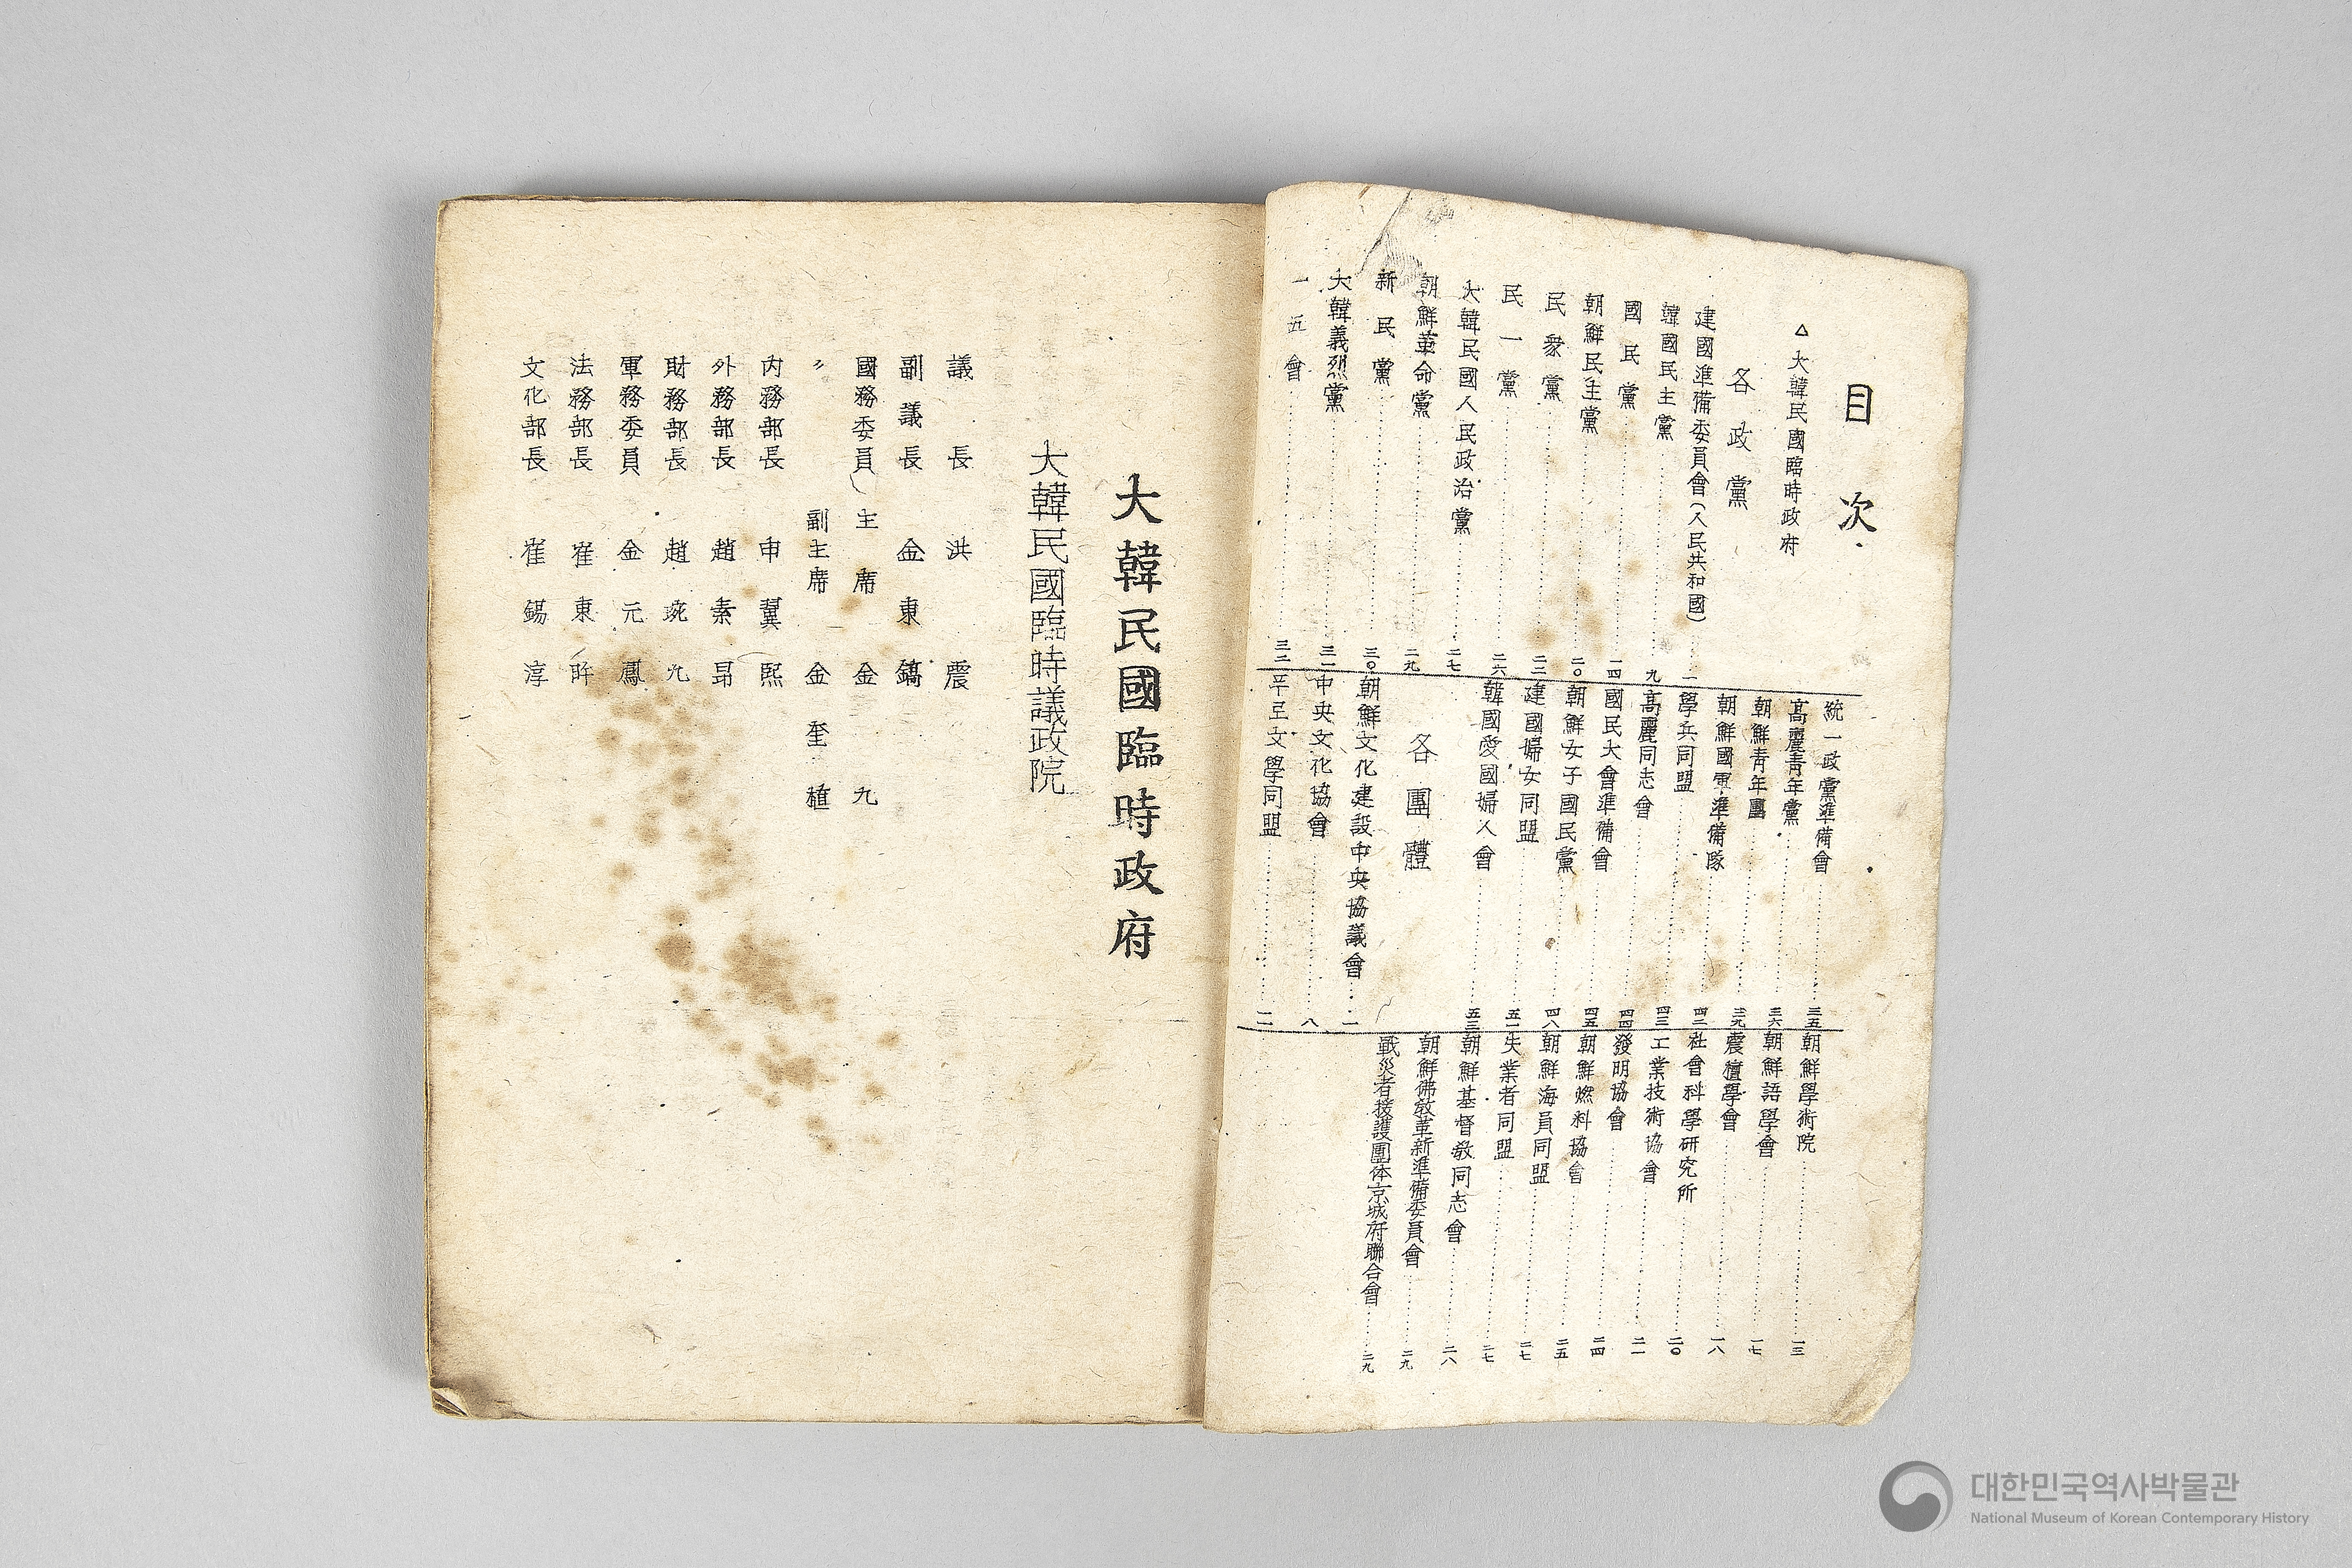 目次
△大韓民國臨時政府
各政黨
建國準備委員會(人民共和國)……一
韓國民主黨……九
國民黨……一四
朝鮮民主黨……二〇
民衆黨……二三
民一黨……二六
大韓民國人民政治黨……二七
朝鮮革命黨……二九
新民黨……三〇
大韓義烈黨……三一
一五會……三二
統一政黨準備會……三五
高麗青年黨……三六
朝鮮青年團……三九
朝鮮國軍準備隊……四二
學兵同盟……四三
高麗同志會……四四
國民大會準備會……四五
朝鮮女子國民黨……四八
建國婦女同盟……五一
韓國愛國婦人會……五三
各團體
朝鮮文化建設中央協議會……一
中央文化協會……八
푸로文學同盟……一一
朝鮮學術院……一三
朝鮮語學會……一七
震檀學會……一八
社會科學研究所……二〇
工業技術協會……二一
發明協會……二四
朝鮮燃料協會……二五
朝鮮海員同盟……二七
失業者同盟……二七
朝鮮基督教同志會……二八
朝鮮佛敎革新準備委員會……二九
戰災者援護團体京城府聯合會……二九
大韓民國臨時政府
大韓民國臨時議政院
議長 洪震
副議長 金東鎬
國務委員(主席 金九
〃 副主席 金奎植
內務部長 申翼熙
外務部長 趙素昂
財務部長 趙琬九
軍務委員 金元鳳
法務部長 崔東旿
文化部長 崔錫淳
대한민국역사박물관
National Museum of Korean Contemporary History